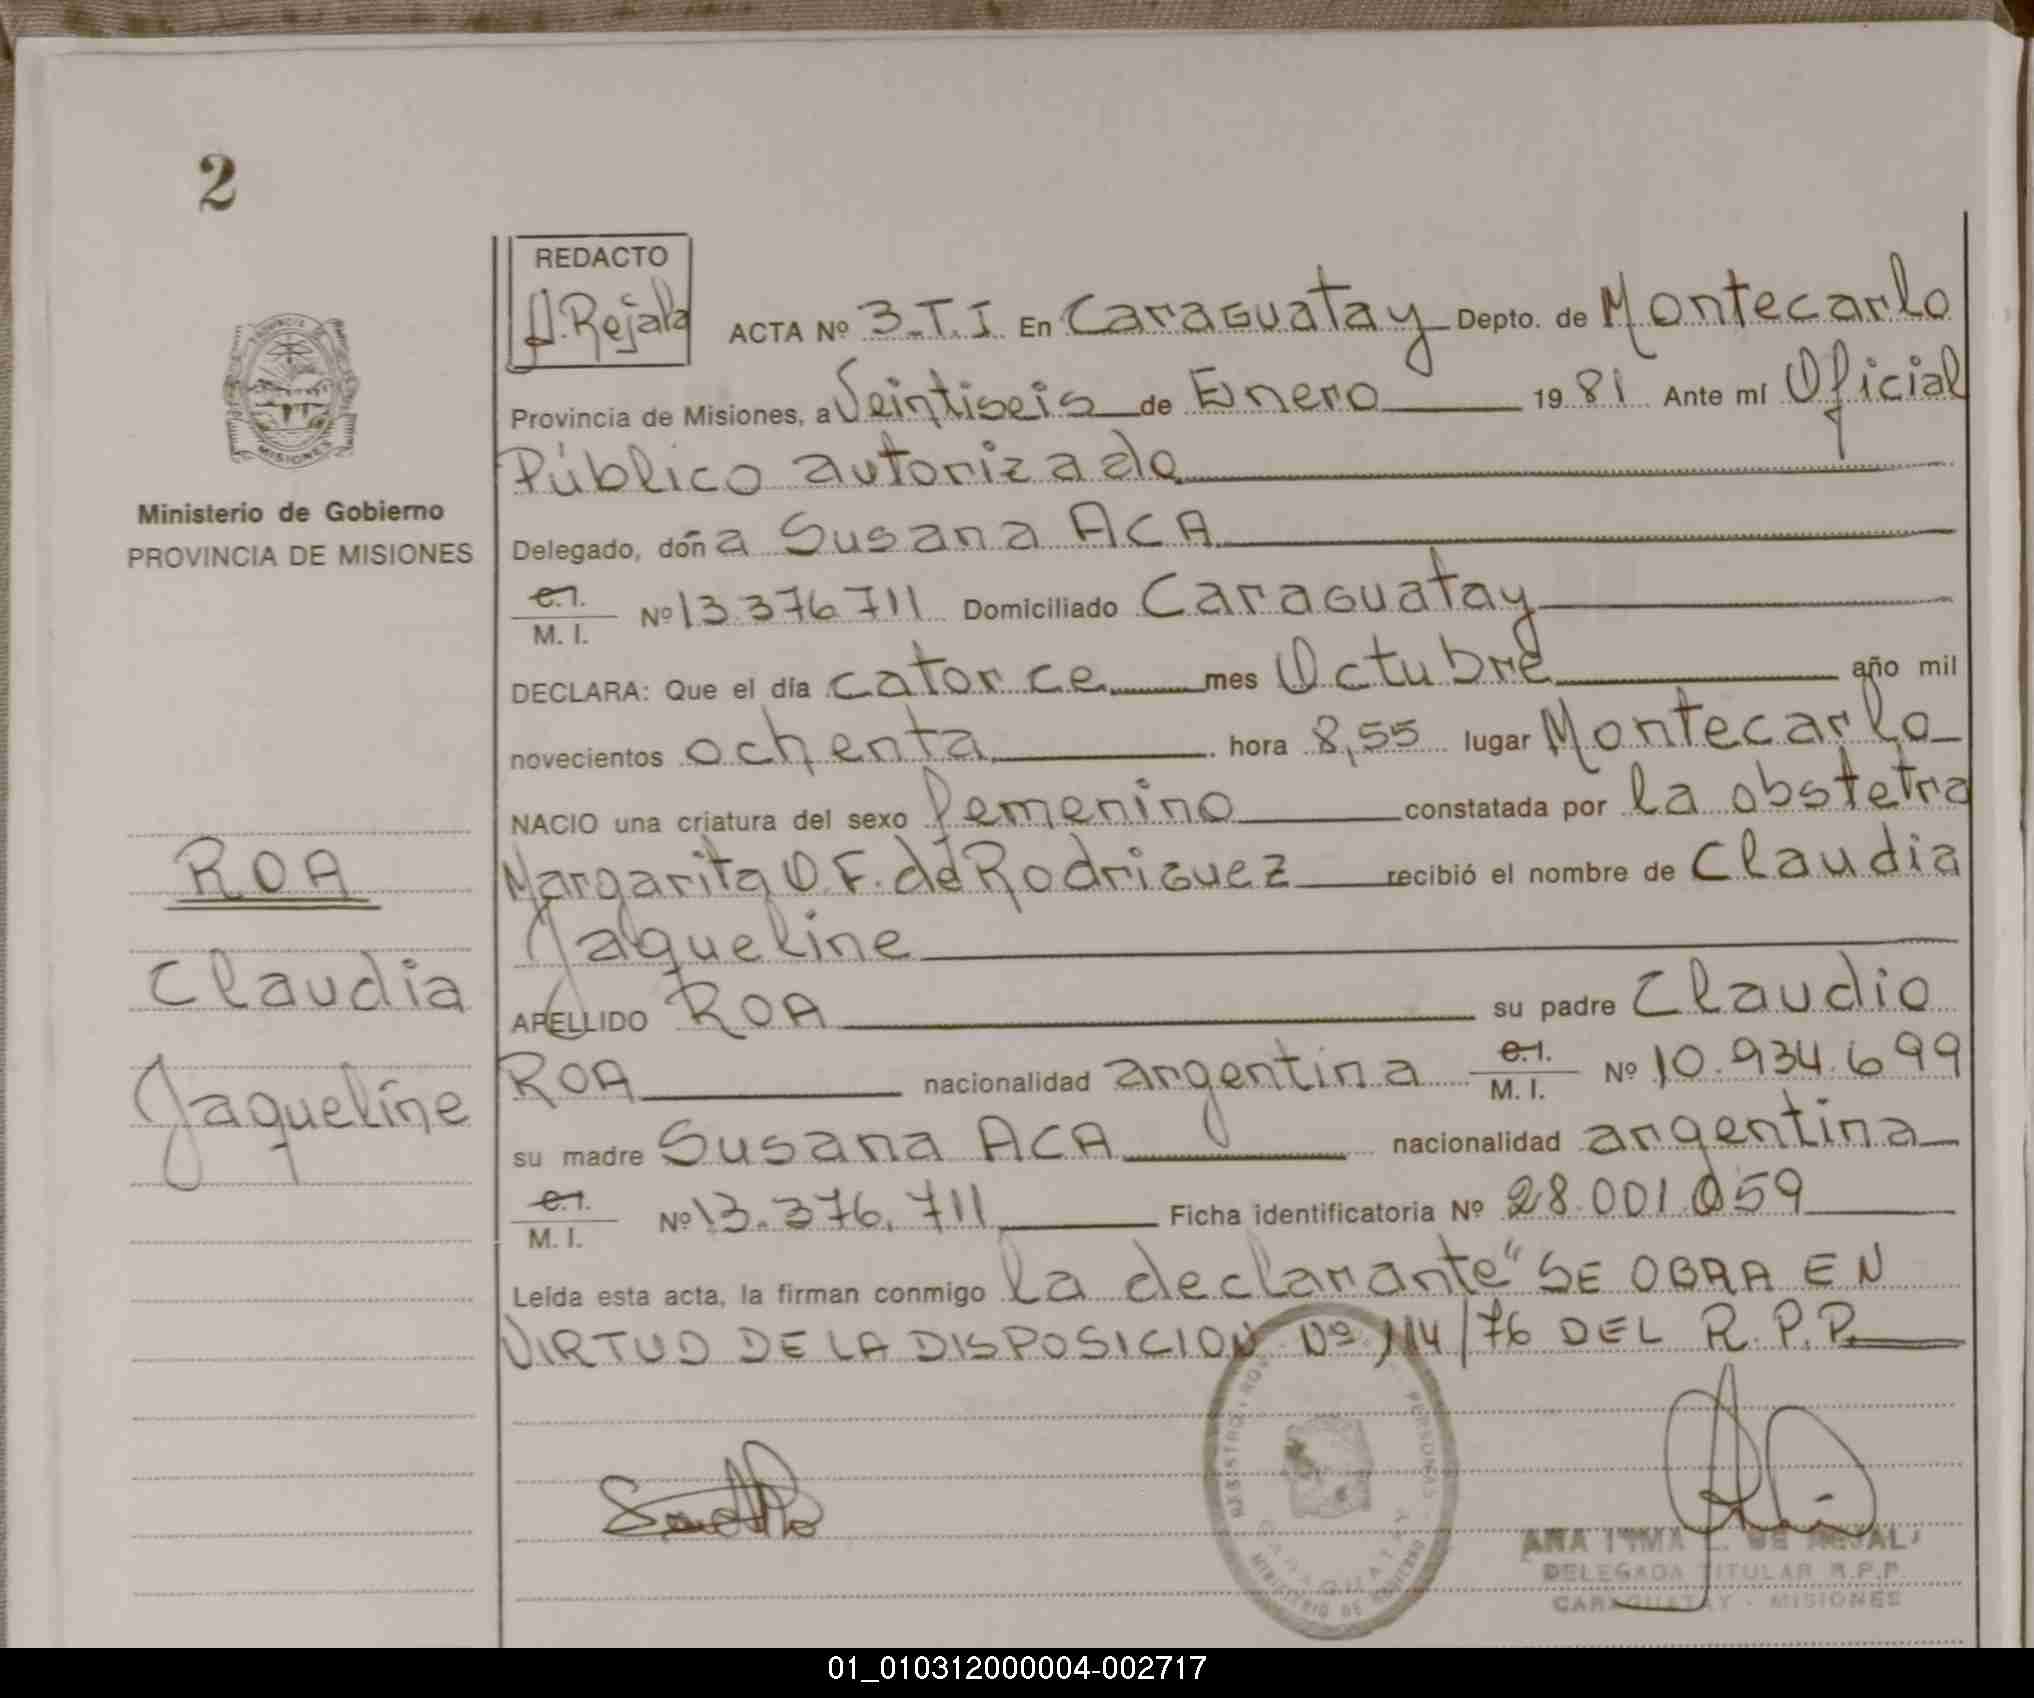 2
REDACTO
A. Rejala
ACTA Nº 3.T.I. En Caraguatay Depto. de Montecarlo
Provincia de Misiones, a Veintiseis de Enero 19 81 Ante mí Oficial
Público autorizado
Delegado, doña Susana ACA
C.I. M. I. Nº 13.376.711 Domiciliado Caraguatay
DECLARA: Que el día catorce mes Octubre año mil
novecientos ochenta hora 8,55 lugar Montecarlo
NACIO una criatura del sexo femenino constatada por la obstetra
Margarita O. F. de Rodriguez recibió el nombre de Claudia
Jaqueline
APELLIDO ROA su padre Claudio
ROA nacionalidad argentina C.I. M. I. Nº 10.934.699
su madre Susana ACA nacionalidad argentina
C.I. M. I. Nº 13.376.711 Ficha identificatoria Nº 28.001.059
Leída esta acta, la firman conmigo la declarante "SE OBRA EN
VIRTUD DE LA DISPOSICION Nº 114/76 DEL R.P.P.
MISIONES
Ministerio de Gobierno
PROVINCIA DE MISIONES
ROA
Claudia
Jaqueline
PERSONAS
CARAGUATAY
MINISTERIO DE GOBIERNO
ANA DE
DELEGADA TITULAR R.P.P.
CARAGUATAY - MISIONES
01_010312000004-002717